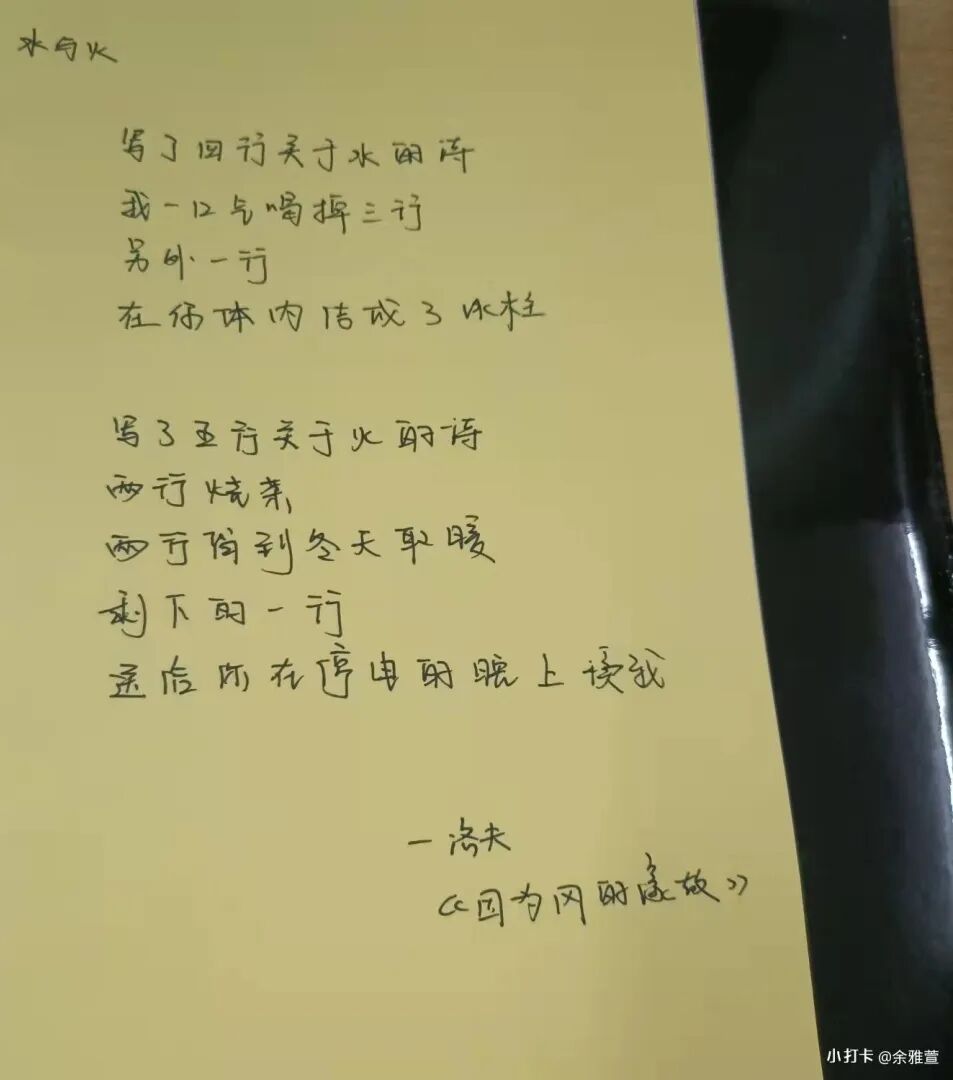 水与火
写了四行关于水的诗
我一口气喝掉三行
另外一行
在你体内结成了冰柱
写了五行关于火的诗
两行烧茶
两行留到冬天取暖
剩下的一行
送给你在停电的晚上读我
—洛夫
《因为风的缘故》
小打卡 @余雅萱